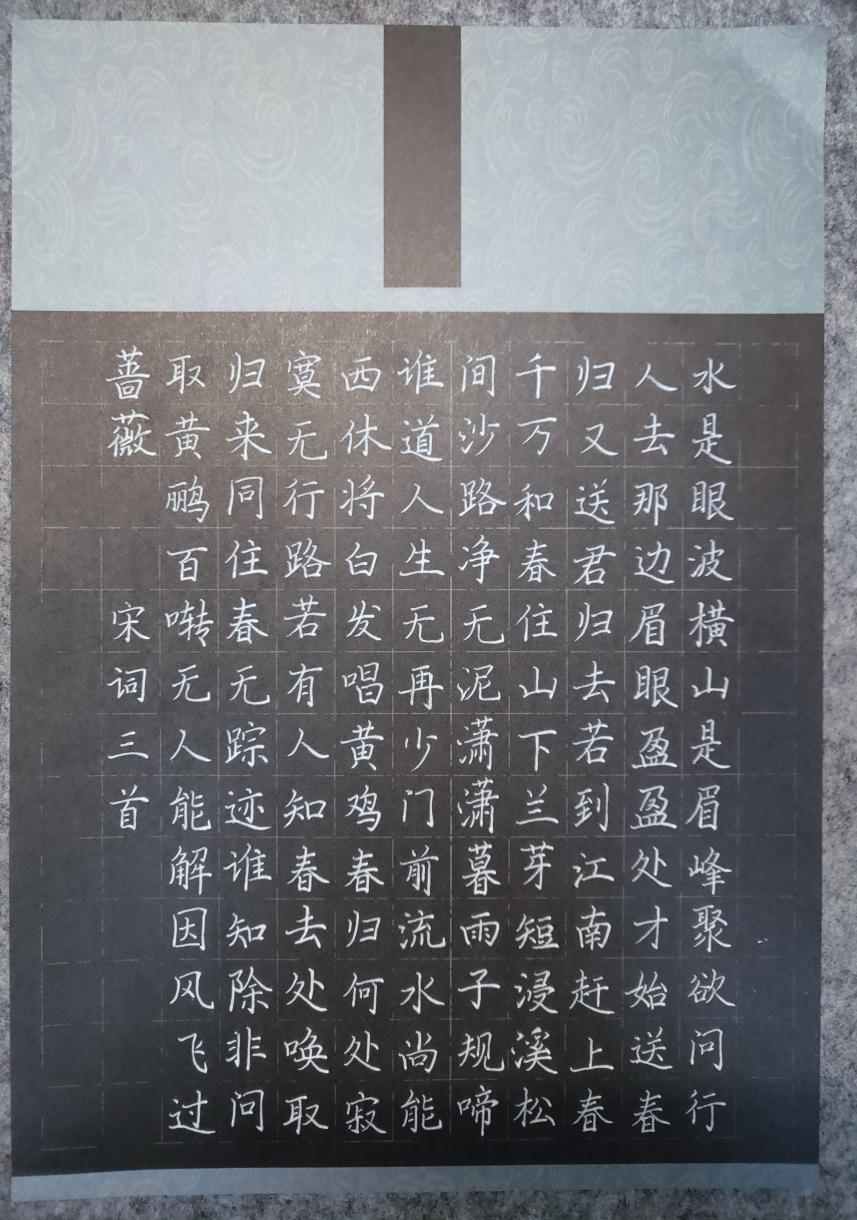 水是眼波横山是眉峰聚欲问行
人去那边眉眼盈盈处才始送春
归又送君归去若到江南赶上春
千万和春住山下兰芽短浸溪松
间沙路净无泥潇潇暮雨子规啼
谁道人生无再少门前流水尚能
西休将白发唱黄鸡春归何处寂
寞无行路若有人知春去处唤取
归来同住春无踪迹谁知除非问
取黄鹂百啭无人能解因风飞过
蔷薇 宋词三首